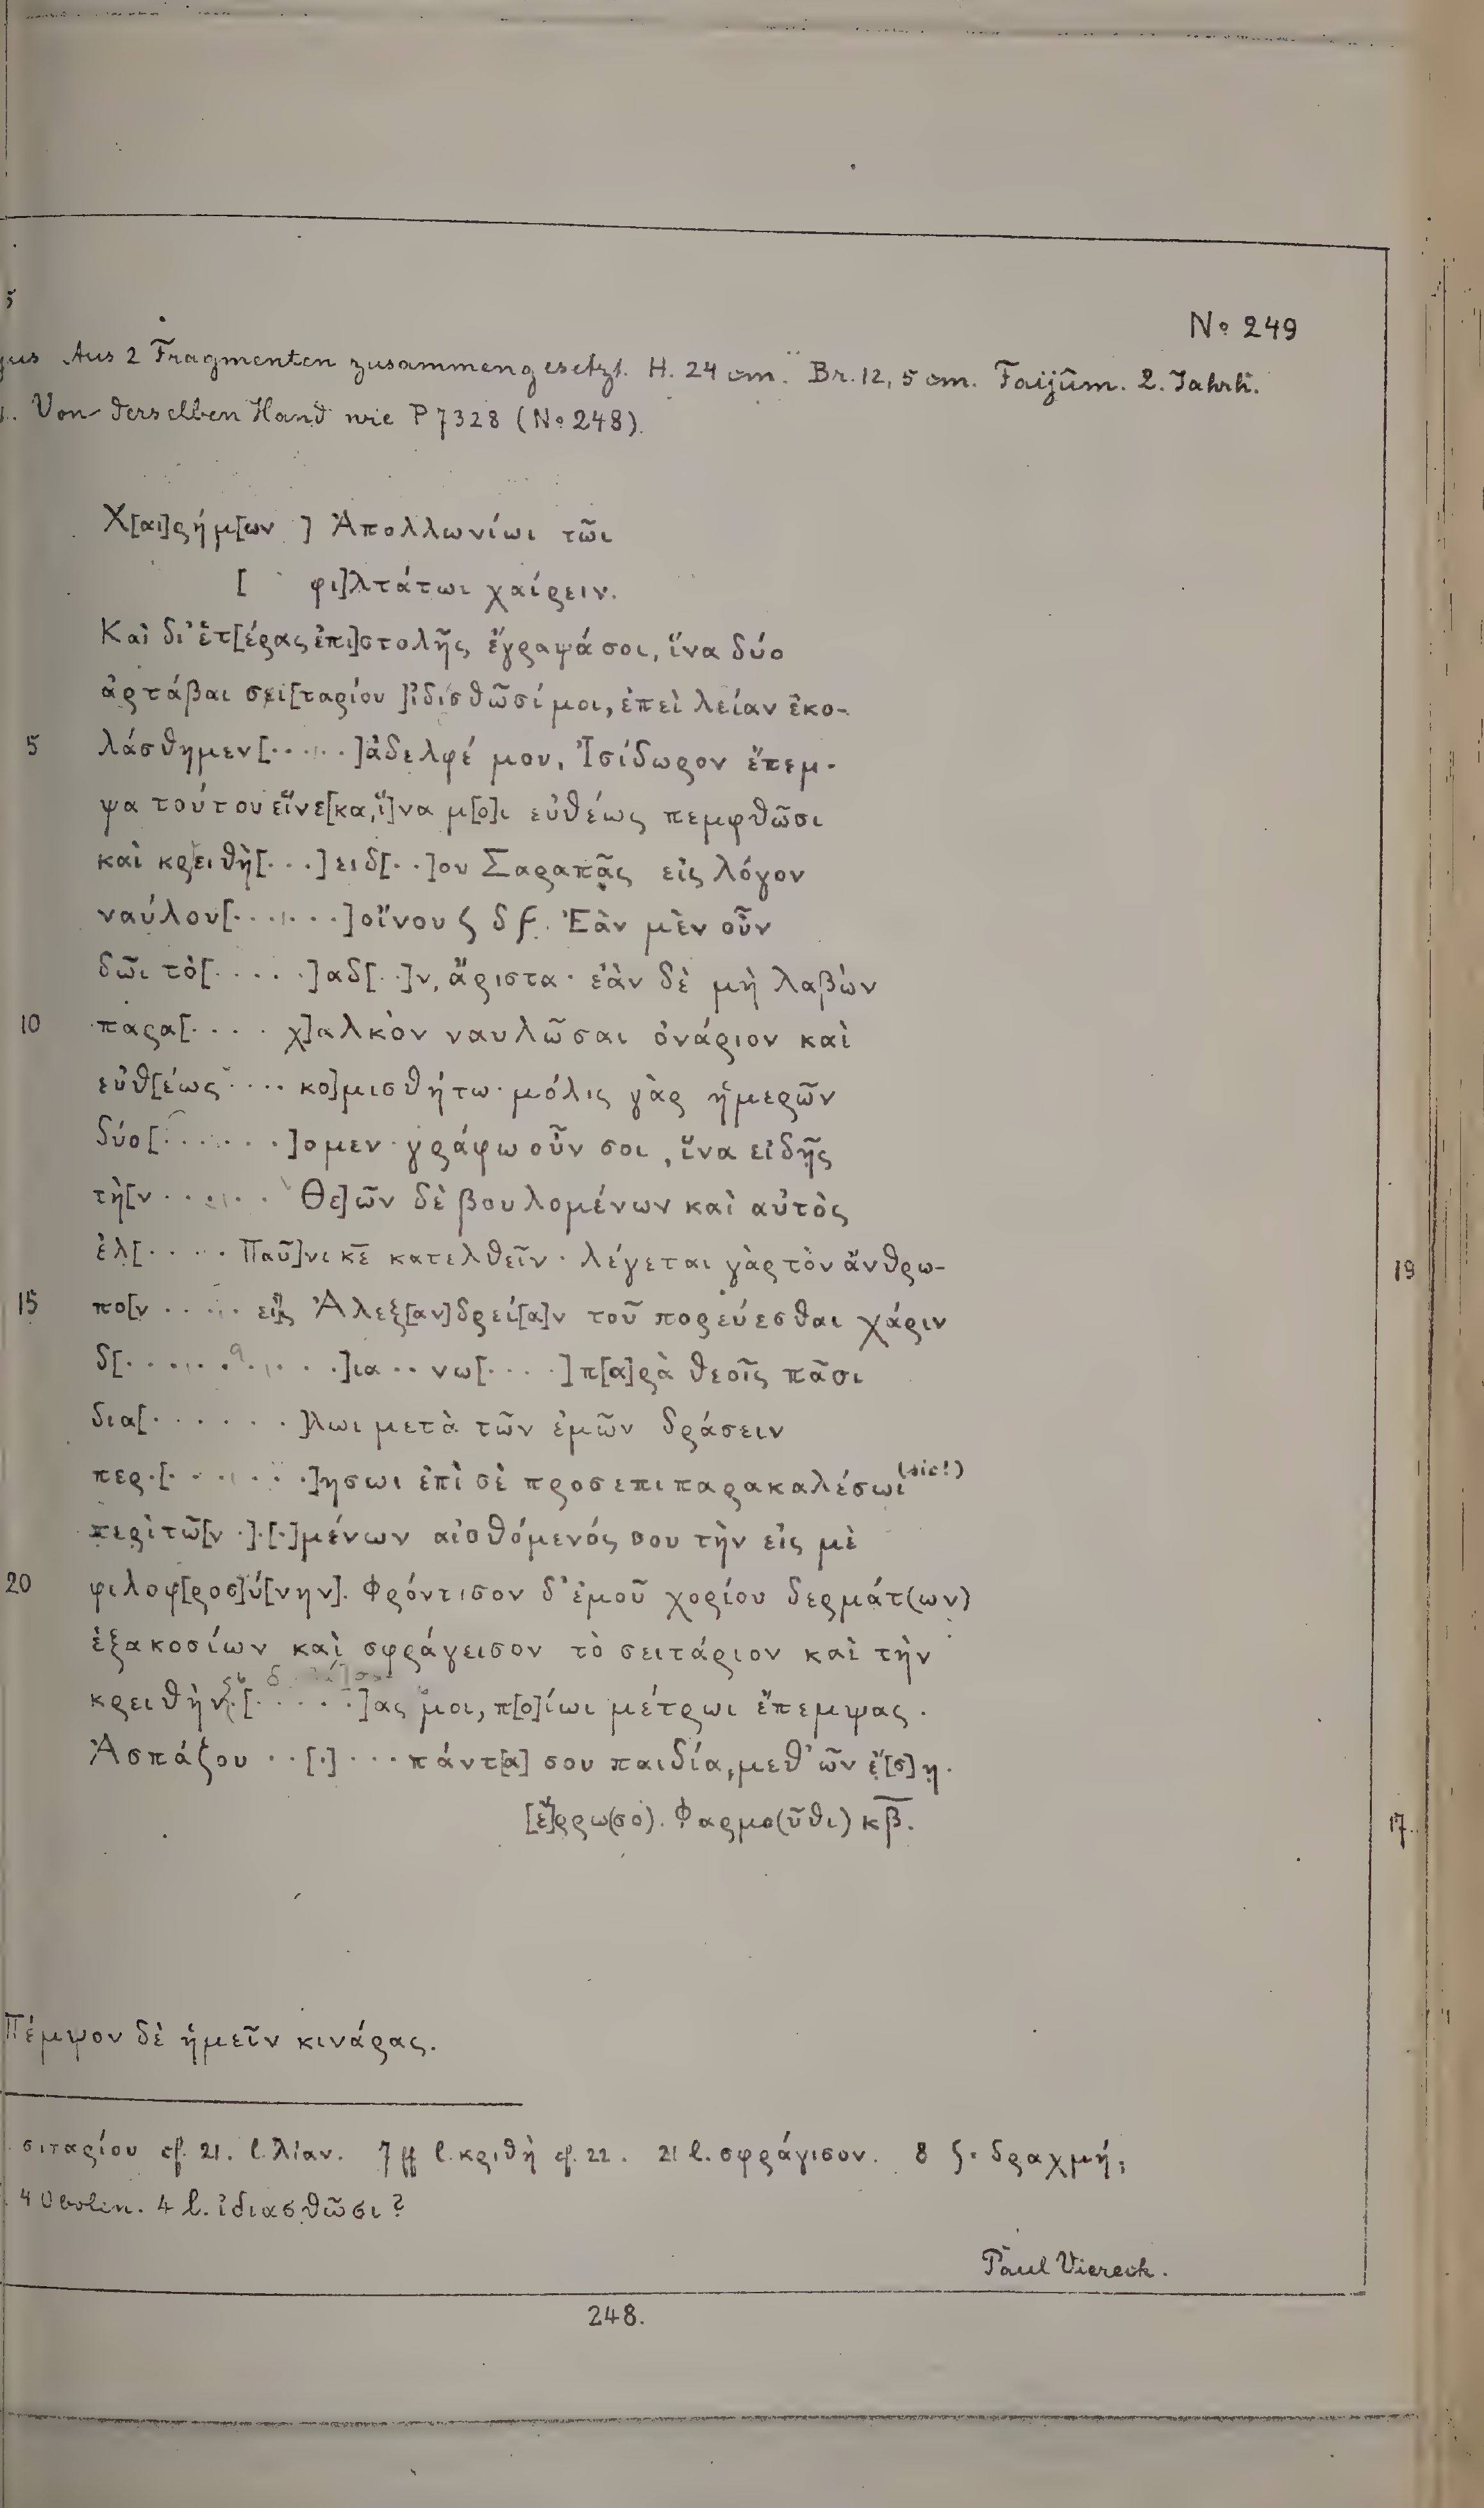 5
No 249
Aus 2 Fragmenten zusammengesetzt. H. 24 cm. Br. 12,5 cm. Faijûm. 2. Jahrh.
Von derselben Hand wie P 7328 (No 248).
Χ[αι]ρήμ[ων ] Ἀπολλωνίωι τῶι
[ φι]λτάτωι χαίρειν.
Καὶ δι' ἑτ[έρας ἐπι]στολῆς ἔγραψά σοι, ἵνα δύο
ἀρτάβαι σει[ταρίου ]ἰδισθῶσί μοι, ἐπεὶ λείαν ἐκο-
5 λάσθημεν[······]ἀδελφέ μου, Ἰσίδωρον ἔπεμ-
ψα τούτου εἵνε[κα, ἵ]να μ[ο]ι εὐθέως πεμφθῶσι
καὶ κρειθὴ[···]ειδ[··]ον Σαραπᾶς εἰς λόγον
ναύλου[·······]οἴνου ϛ δ f. Ἐὰν μὲν οὖν
δῶι τὸ[······]αδ[··]ν, ἄριστα· ἐὰν δὲ μὴ λαβὼν
10 παρα[···· χ]αλκὸν ναυλῶσαι ὀνάριον καὶ
εὐθ[έως ···· κο]μισθήτω· μόλις γὰρ ἡμερῶν
δύο[·······]ομεν· γράφω οὖν σοι, ἵνα εἰδῇς
τὴ[ν ······ Θε]ῶν δὲ βουλομένων καὶ αὐτὸς
ἐλ[···· Παῦ]νι κε κατελθεῖν· λέγεται γὰρ τὸν ἄνθρω-
19
15 πο[ν ····· εἰς Ἀλεξ[αν]δρεί[α]ν τοῦ πορεύεσθαι χάριν
δ[···········]ια·· νω[····]π[α]ρὰ θεοῖς πᾶσι
δια[·······]λωι μετὰ τῶν ἐμῶν δράσειν
περ·[·······]ησωι ἐπὶ σὲ προσεπιπαρακαλέσωι (sic!)
περὶ τῶ[ν ·]·[·]μένων αἰσθόμενός σου τὴν εἰς μὲ
20 φιλοφ[ροσ]ύ[νην]. Φρόντισον δ' ἐμοῦ χορίου δερμάτ(ων)
ἑξακοσίων καὶ σφράγεισον τὸ σειτάριον καὶ τὴν
κρειθὴν [·····]ας μοι, π[ο]ίωι μέτρωι ἔπεμψας.
Ἀσπάζου ··[·]··· πάντ[α] σου παιδία, μεθ' ὧν ἔ[σ]η.
[ἔ]ρρω(σο). Φαρμο(ῦθι) κβ̅.
17
Πέμψον δὲ ἡμεῖν κινάρας.
σιταρίου cf. 21. l. λίαν. 7 ff l. κριθὴ cf. 22. 21 l. σφράγισον. 8 ϛ· δραχμή;
4 Obolen. 4 l. ἰδιασθῶσι?
Paul Viereck.
248.